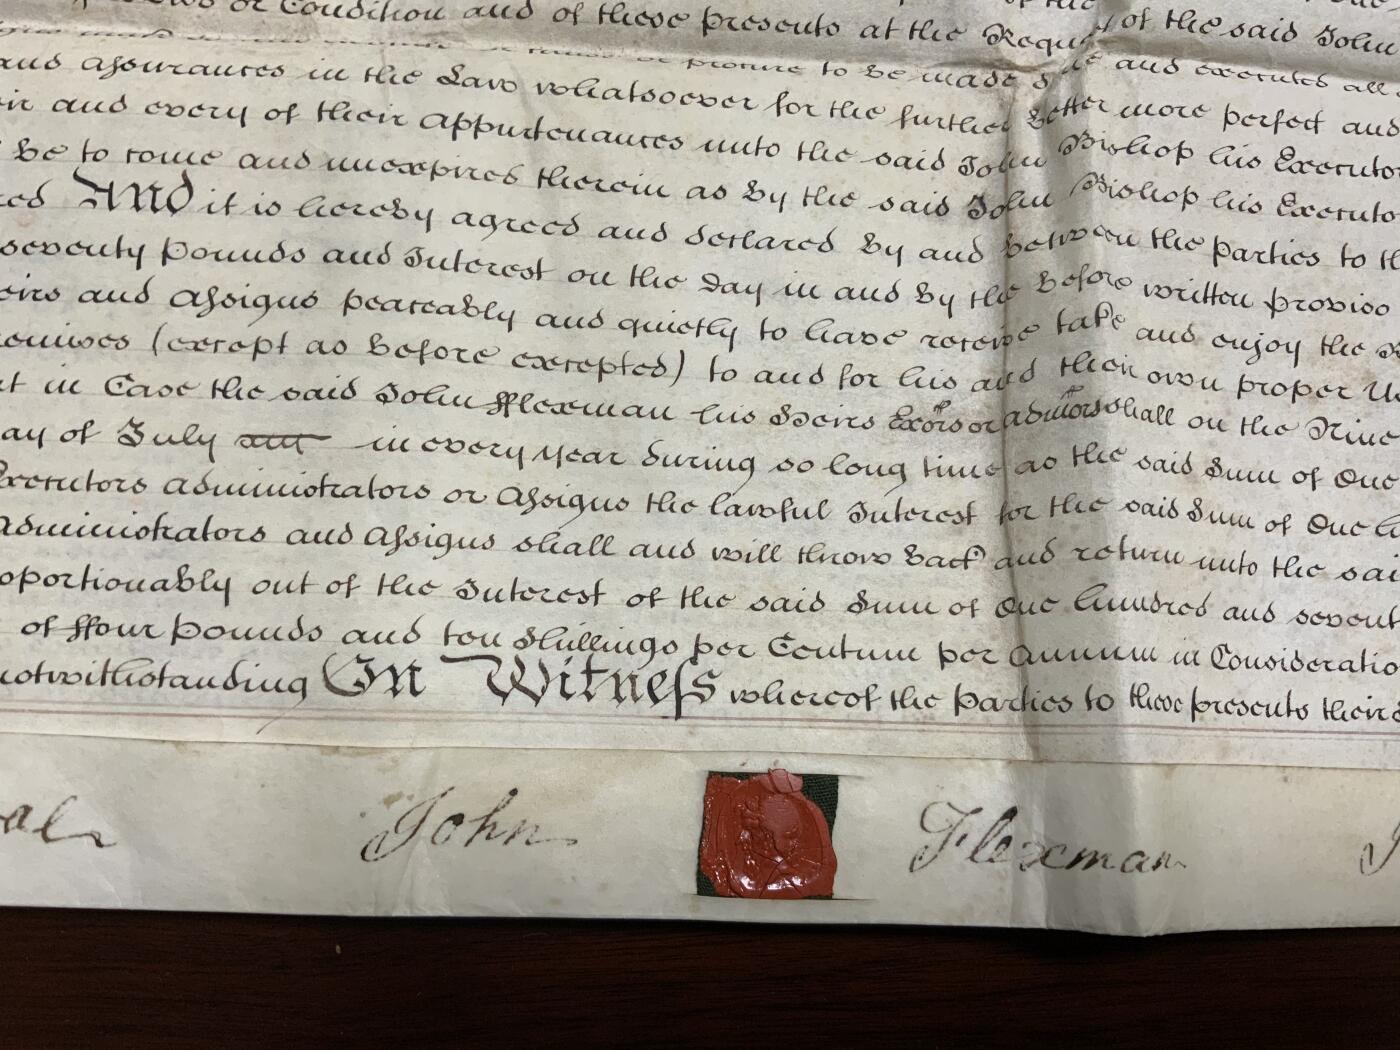 or Condition and of these presents at the Request of the said John
to be made done and executed all
and assurances in the Law whatsoever for the further better more perfect and
and every of their appurtenances unto the said John Bishop his Executors
be to come and unexpired therein as by the said John Bishop his Executo
And it is hereby agreed and declared by and between the parties to th
seventy pounds and Interest on the Day in and by the before written proviso
eirs and assigns peaceably and quietly to have receive take and enjoy the
remises (except as before excepted) to and for his and their own proper Us
in Case the said John fflexman his Heirs Exors or admors shall on the Nine
ay of July in every year during so long time as the said Sum of One
Executors administrators or assigns the lawful Interest for the said Sum of One h
administrators and assigns shall and will throw back and return unto the sai
oportionably out of the Interest of the said Sum of One hundred and sevent
of ffour pounds and ten Shillings per Centum per annum in Consideratio
notwithstanding In Witness whereof the parties to these presents their
John Flexman